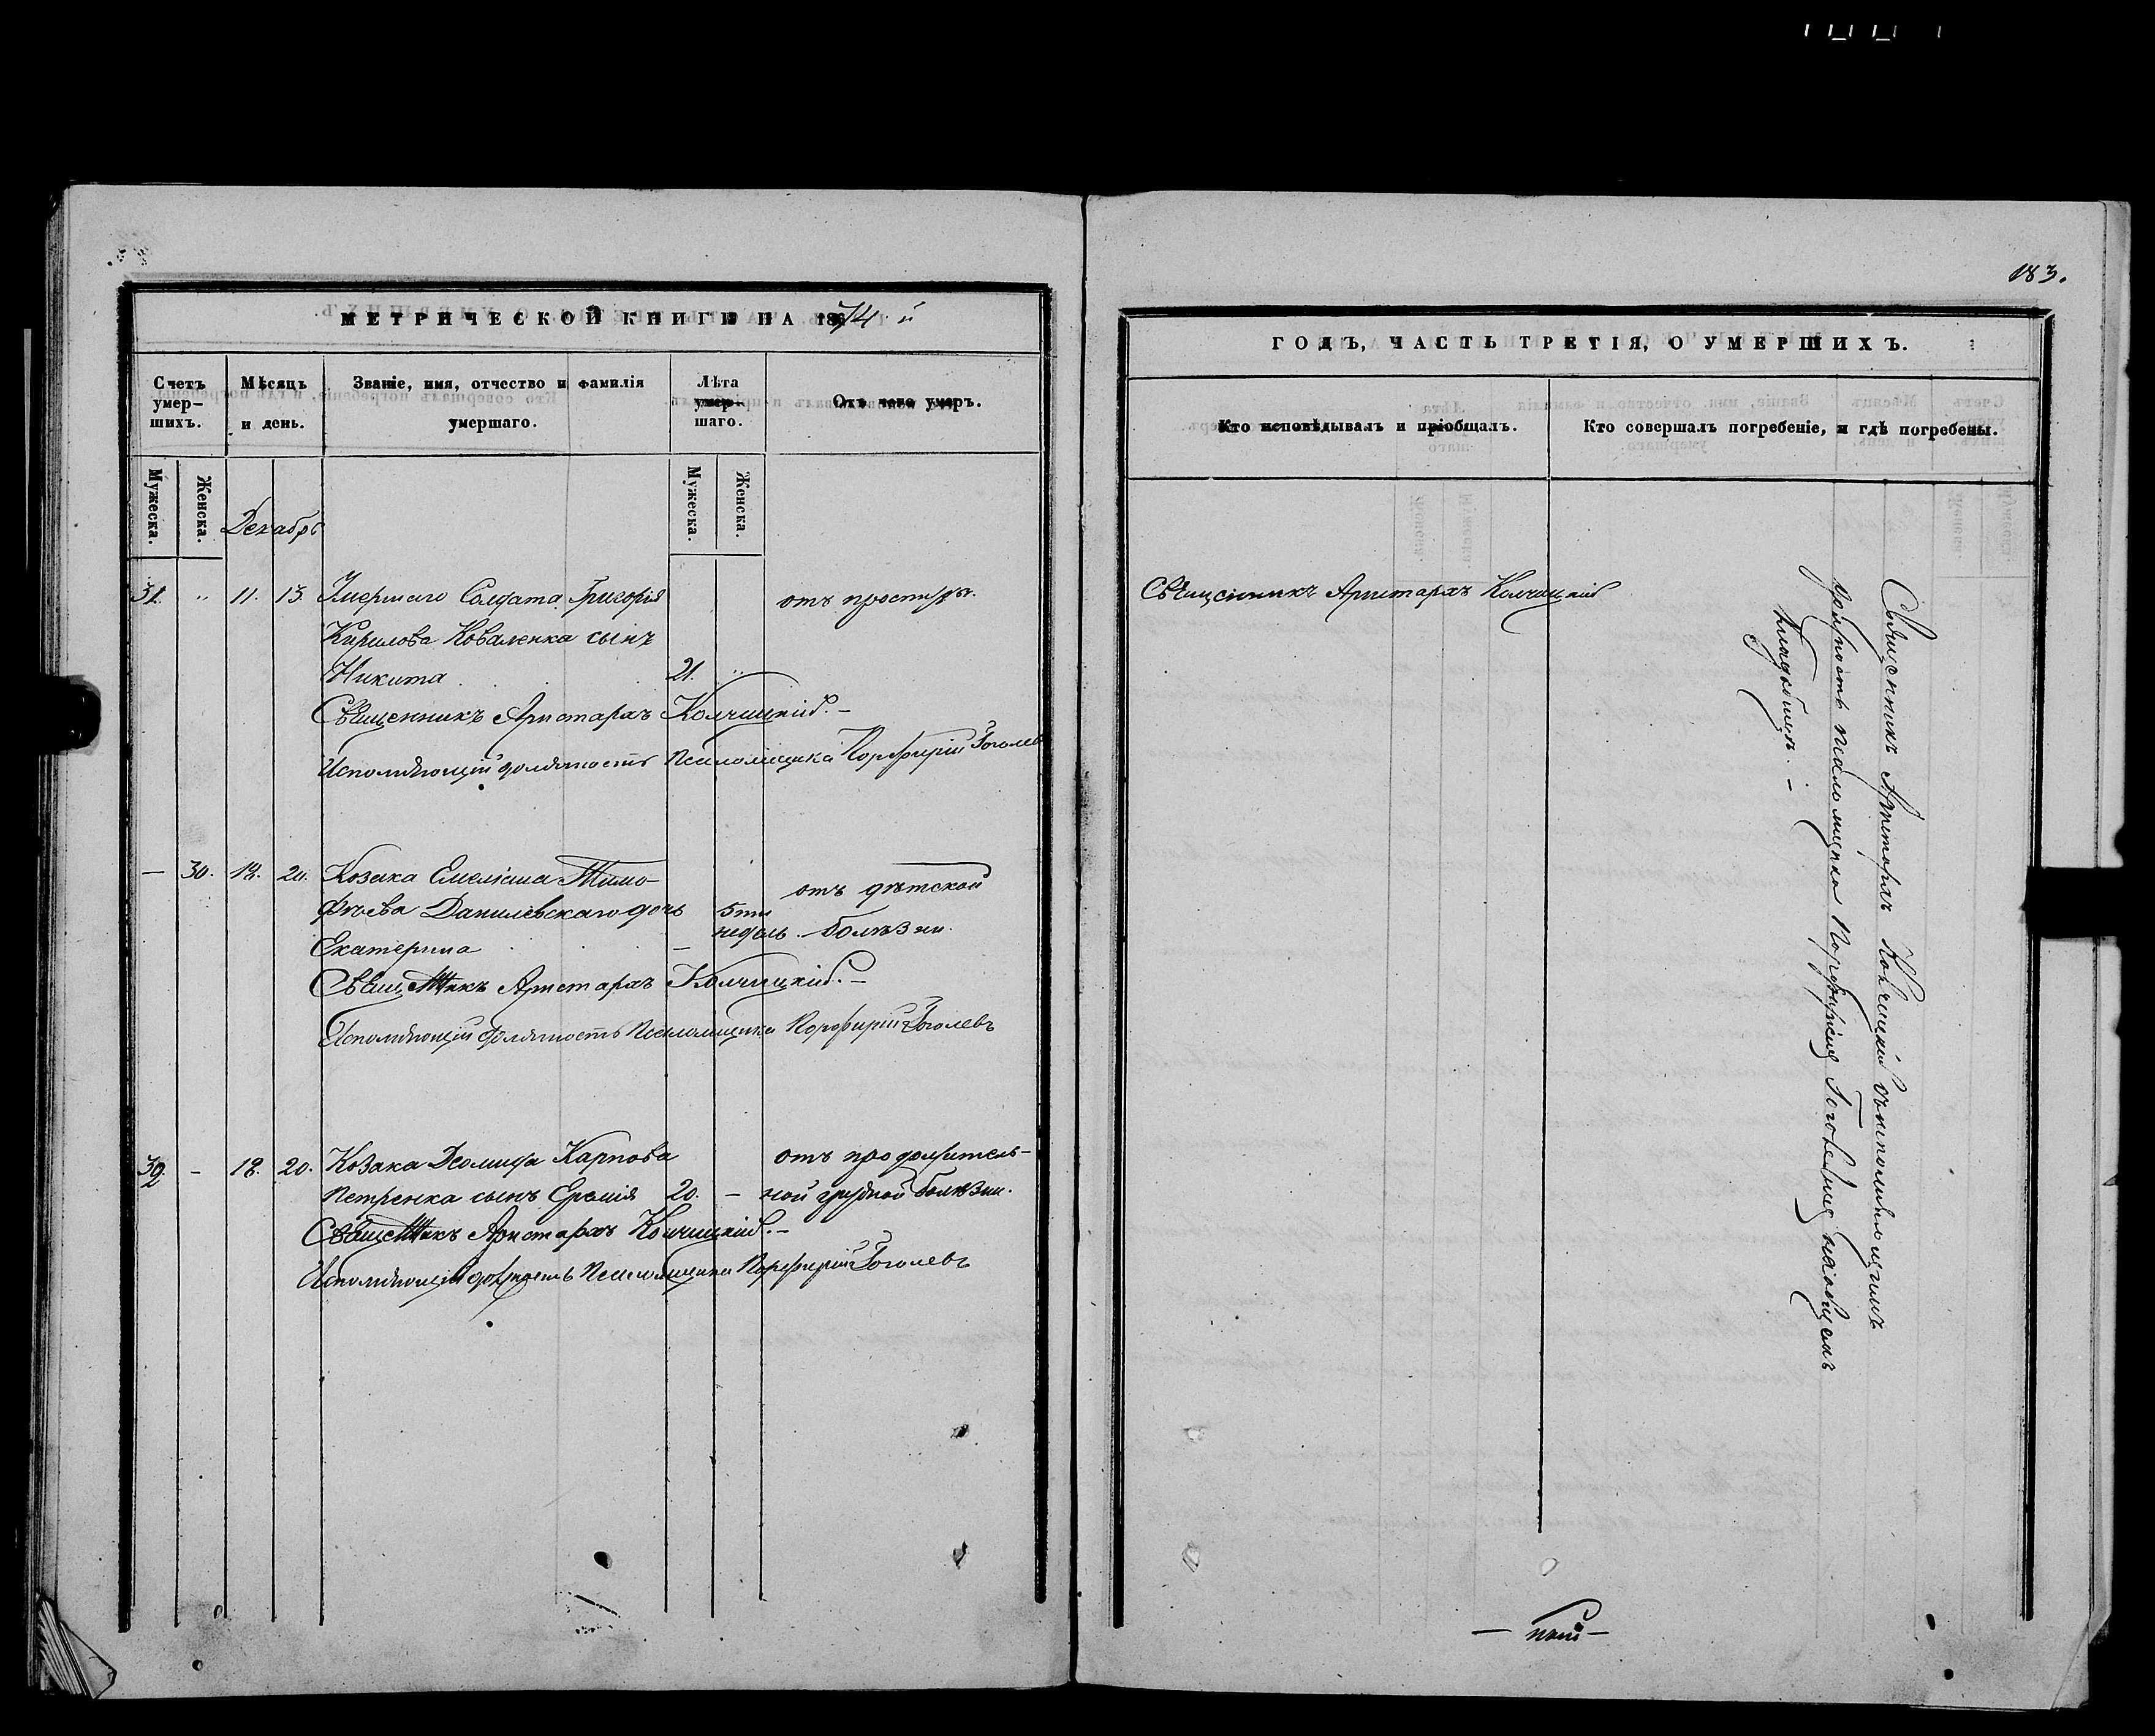 МЕТРИЧЕСКОЙ КНИГИ НА 1874 й
Счетъ умер-шихъ.
Мѣсяцъ и день.
Званіе, имя, отчество и фамилія умершаго.
Лѣта умер-шаго.
Отъ чего умеръ.
Мужеска.
Женска.
Мужеска.
Женска.
Декабрь
31. " 11. 13. Умершаго Солдата Григорія отъ простуды.
Кирилова Коваленка сынъ
Никита 21. "
Священникъ Аристархъ Колчицкій. –
Исполняющій должность Псаломщика Порфирій Гоголевъ
— 30. 18. 20. Козака Емеліана Тимо- отъ дѣтской
фѣева Данилевскаго дочь 5ти
недѣль. болѣзни.
Екатерина –
Священникъ Аристархъ Колчицкій. –
Исполняющій должность Псаломщика Порфирій Гоголевъ
32. – 18. 20. Козака Деомида Карпова отъ продолжитель-
Петренка сынъ Ермія 20. – ной грудной болѣзни.
Священникъ Аристархъ Колчицкій. –
Исполняющій должность Псаломщика Порфирій Гоголевъ
183.
ГОДЪ, ЧАСТЬ ТРЕТІЯ, О УМЕРШИХЪ.
Кто исповѣдывалъ и пріобщалъ.
Кто совершалъ погребеніе, и гдѣ погребены.
Священникъ Аристархъ Колчицкій
Священникъ Аристархъ Колчицкій съ исполняющимъ
должность псаломщика Порфиріемъ Гоголевымъ на общемъ
кладбищѣ. –